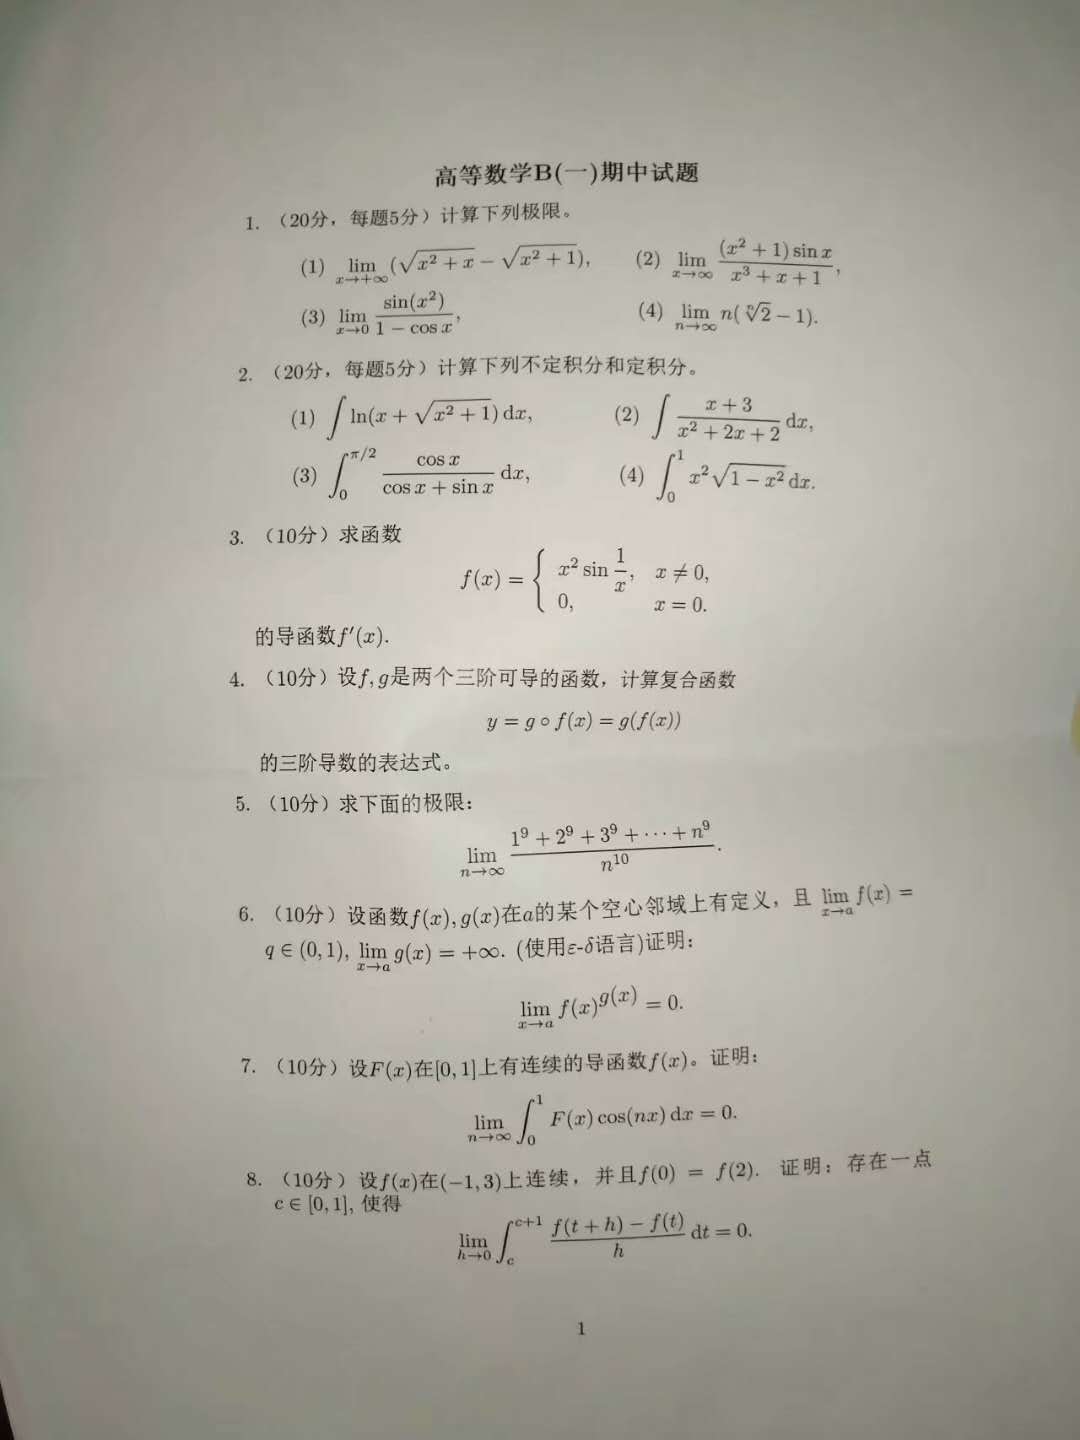 高等数学B(一)期中试题
1. （20分，每题5分）计算下列极限。
(1) lim_{x→+∞} (√(x²+x) − √(x²+1)), (2) lim_{x→∞} (x²+1) sin x / (x³+x+1),
(3) lim_{x→0} sin(x²) / (1 − cos x), (4) lim_{n→∞} n(ⁿ√2 − 1).
2. （20分，每题5分）计算下列不定积分和定积分。
(1) ∫ ln(x + √(x²+1)) dx, (2) ∫ (x+3) / (x²+2x+2) dx,
(3) ∫_0^{π/2} cos x / (cos x + sin x) dx, (4) ∫_0^1 x²√(1−x²) dx.
3. （10分）求函数
f(x) = { x² sin 1/x, x ≠ 0,
0, x = 0.
的导函数f′(x).
4. （10分）设f, g是两个三阶可导的函数，计算复合函数
y = g ∘ f(x) = g(f(x))
的三阶导数的表达式。
5. （10分）求下面的极限：
lim_{n→∞} (1⁹ + 2⁹ + 3⁹ + ⋯ + n⁹) / n¹⁰.
6. （10分）设函数f(x), g(x)在a的某个空心邻域上有定义，且 lim_{x→a} f(x) =
q ∈ (0,1), lim_{x→a} g(x) = +∞. (使用ε-δ语言)证明：
lim_{x→a} f(x)^{g(x)} = 0.
7. （10分）设F(x)在[0,1]上有连续的导函数f(x)。证明：
lim_{n→∞} ∫_0^1 F(x) cos(nx) dx = 0.
8. （10分）设f(x)在(−1,3)上连续，并且f(0) = f(2). 证明：存在一点
c ∈ [0,1], 使得
lim_{h→0} ∫_c^{c+1} (f(t+h) − f(t)) / h dt = 0.
1